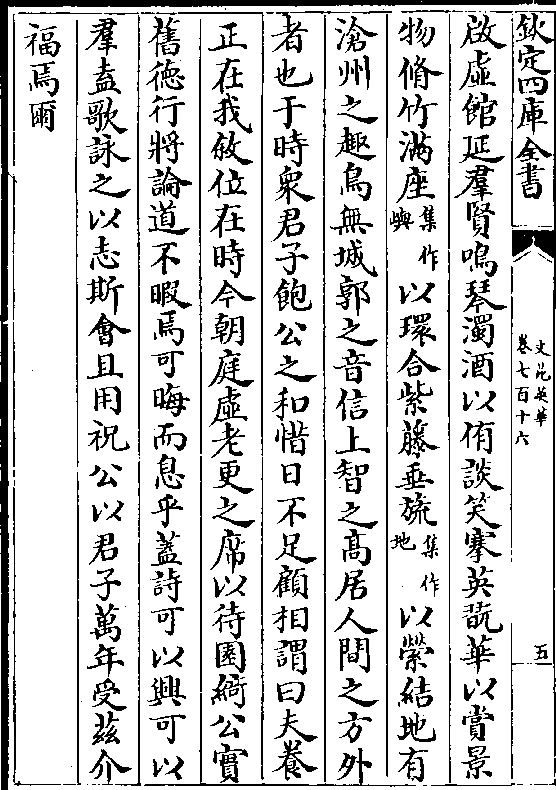 欽定四庫全書
文苑英華
卷七百十六
五
啟虛館延羣賢鳴琴濁酒以侑談笑搴英翫華以賞景
物脩竹滿座集作嶼以環合紫藤垂旒集作地以縈結地有
滄州之趣鳥無城郭之音信上智之高居人間之方外
者也于時衆君子飽公之和惜日不足顧相謂曰夫養
正在我敘位在時今朝庭虛老更之席以待園綺公實
舊徳行將論道不暇焉可晦而息乎蓋詩可以興可以
羣盍歌詠之以志斯會且用祝公以君子萬年受兹介
福焉爾